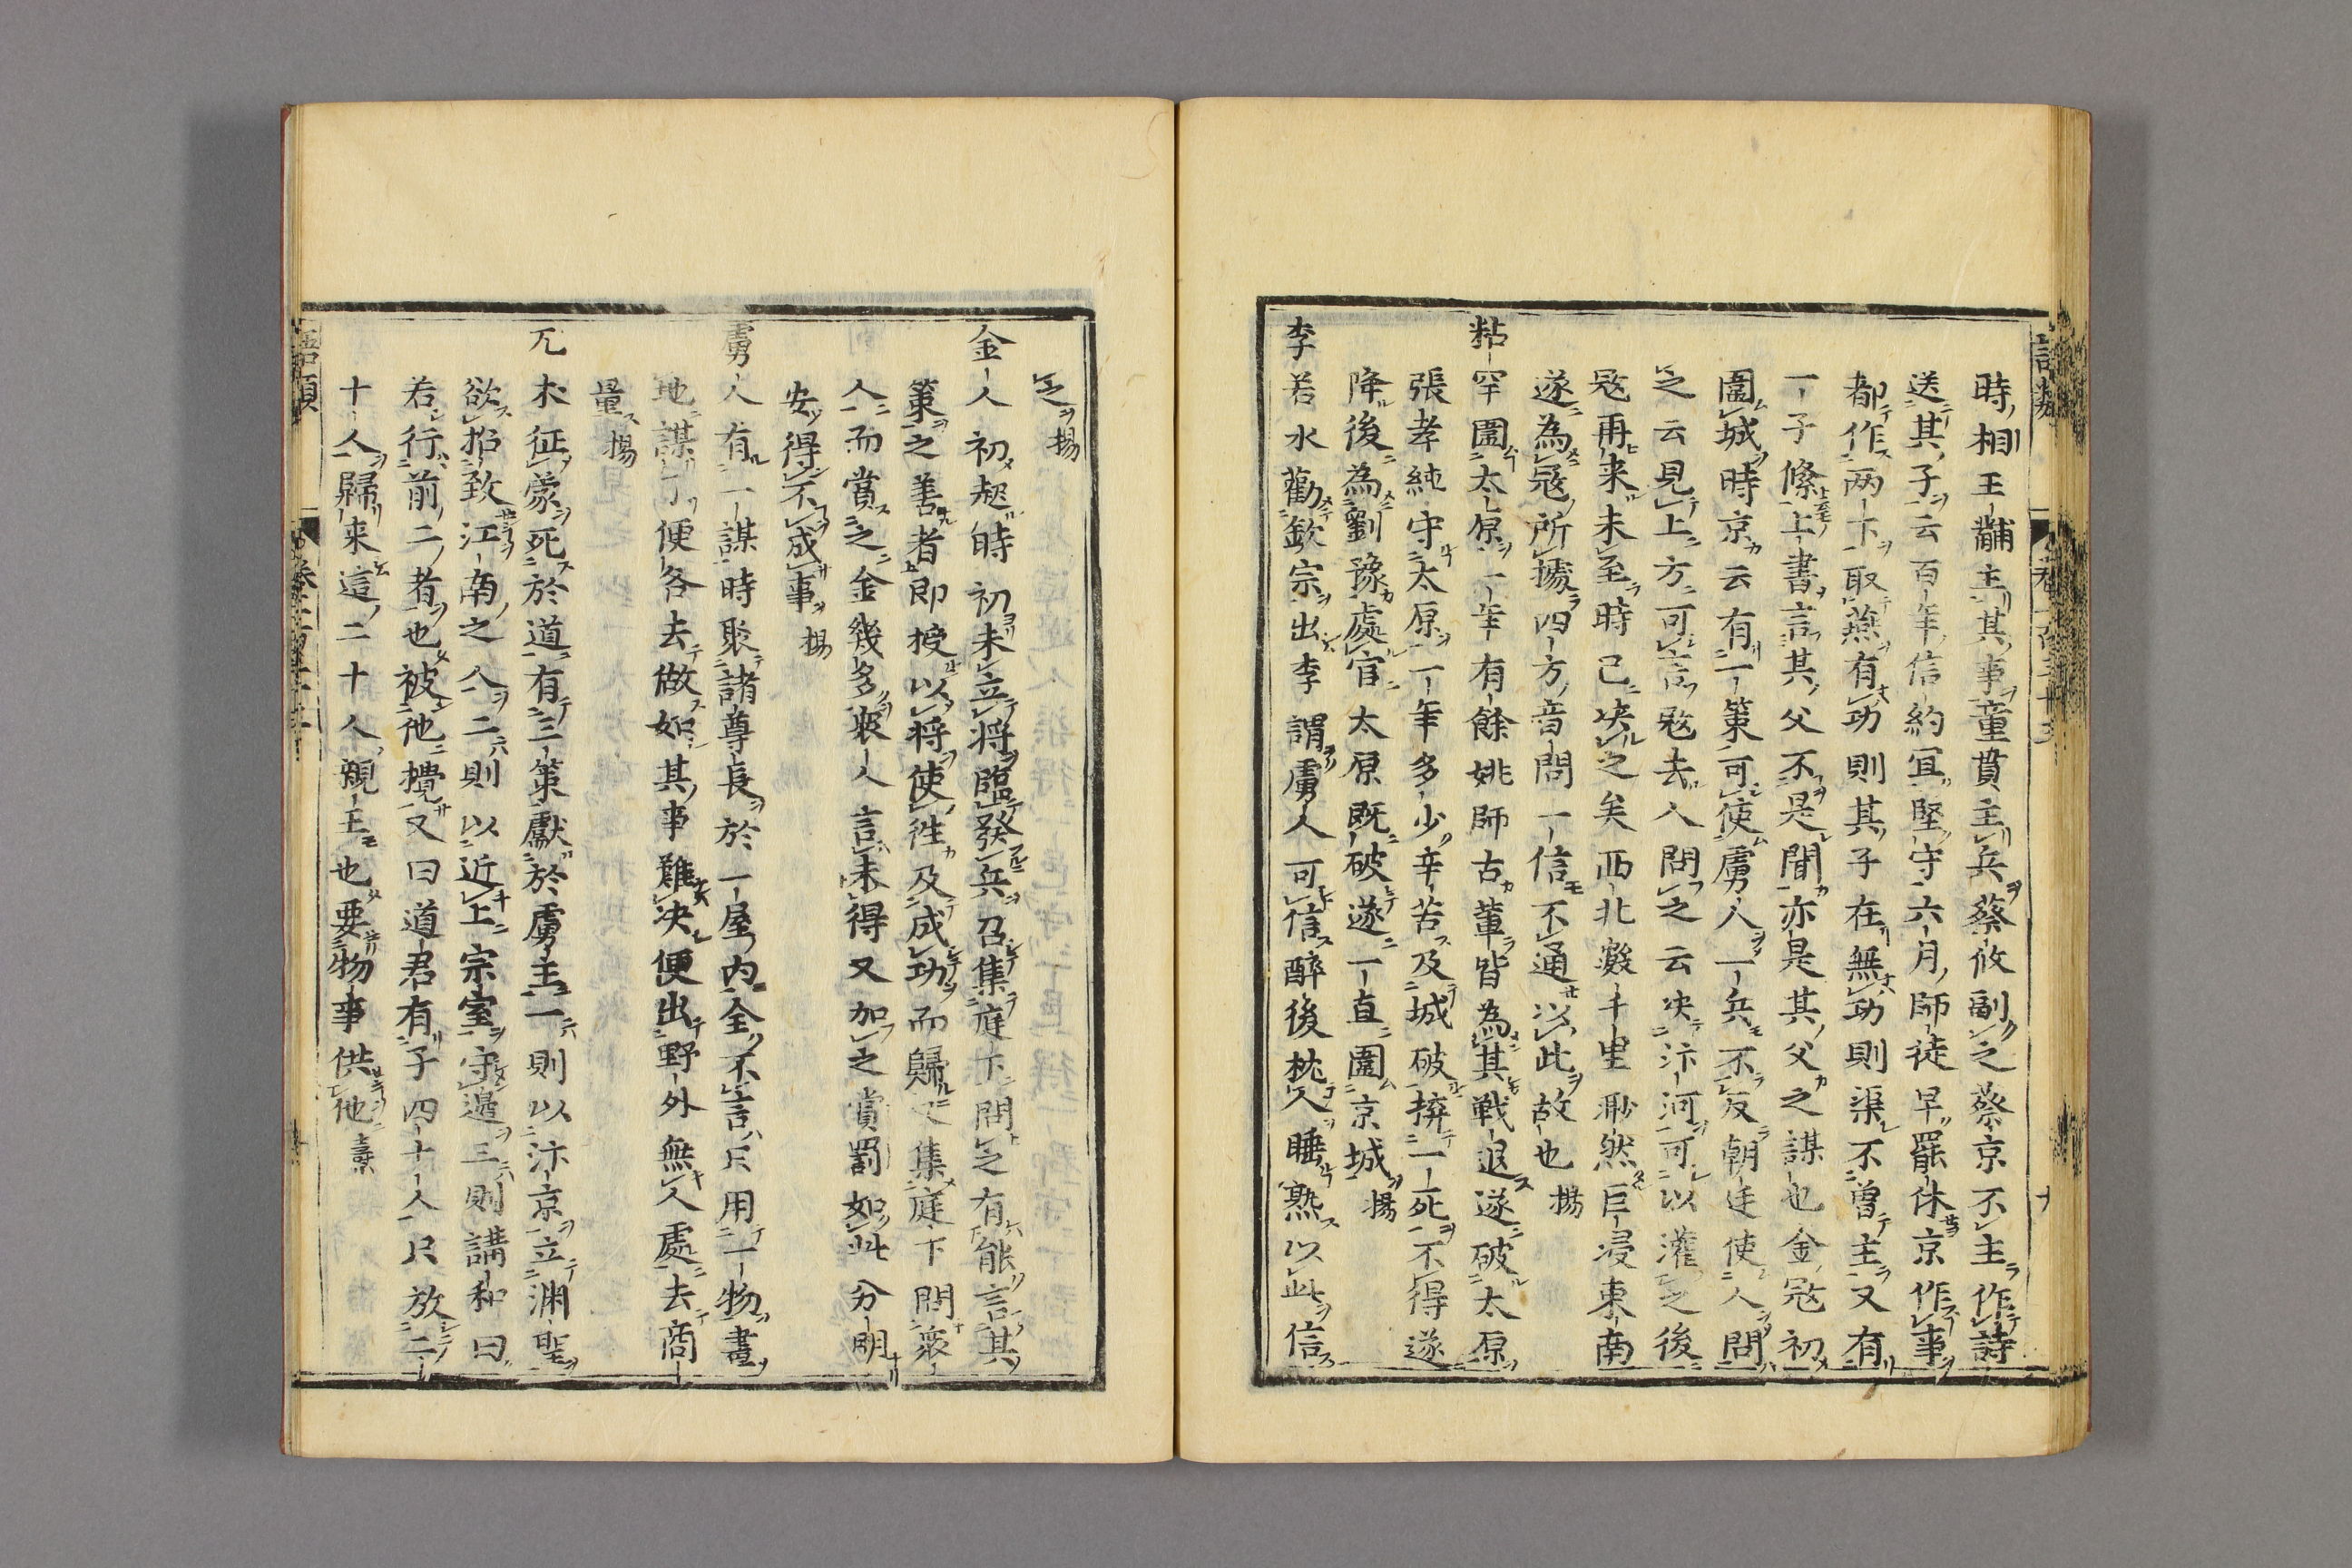 時相王黼主其事童貫主兵蔡攸副之蔡京不主作詩
送其子云百年信約冝堅守六月師徒早罷休京作事
都作两下取燕有功則其子在無功則渠不曽主又有
一子絛上書言其父不是聞亦是其父之謀也金冦初
圍城時京云有一策可使虜人一兵不反朝廷使人問
之云見上方可言冦去人問之云决汴河可以灌之後
冦再来未至時已决之矣西北數千里渺然巨浸東南
遂為冦所據四方音問一信不通以此故也 揚
粘罕圍太原一年有餘姚師古軰皆為其戦退遂破太原
張孝純守太原一年多少辛苦及城破擠一死不得遂
降後為劉豫處官太原既破遂一直圍京城 揚
李若水勸欽宗出李謂虜人可信醉後枕人睡熟以此信
之 揚
金人初起時初未立将臨發兵召集庭下問之有能言其
策之善者即授以将使徃及成功而歸又集庭下問衆
人而賞之金幾多衆人言未得又加之賞罰如此分明
安得不成事 揚
虜人有一謀時聚諸尊長於一屋内全不言只用一物畫
地謀了便各去做如其事難决便出野外無人處去商
量 揚
兀朮征蒙死於道有三策獻於虜主一則以汴京立渊聖
欲招致江南之人二則以近上宗室守邉三則講和曰
若行前二者也被他攪又曰道君有子四十人只放二
十人歸来這二十人親王也要物事供他 燾
語類
卷一百三十三